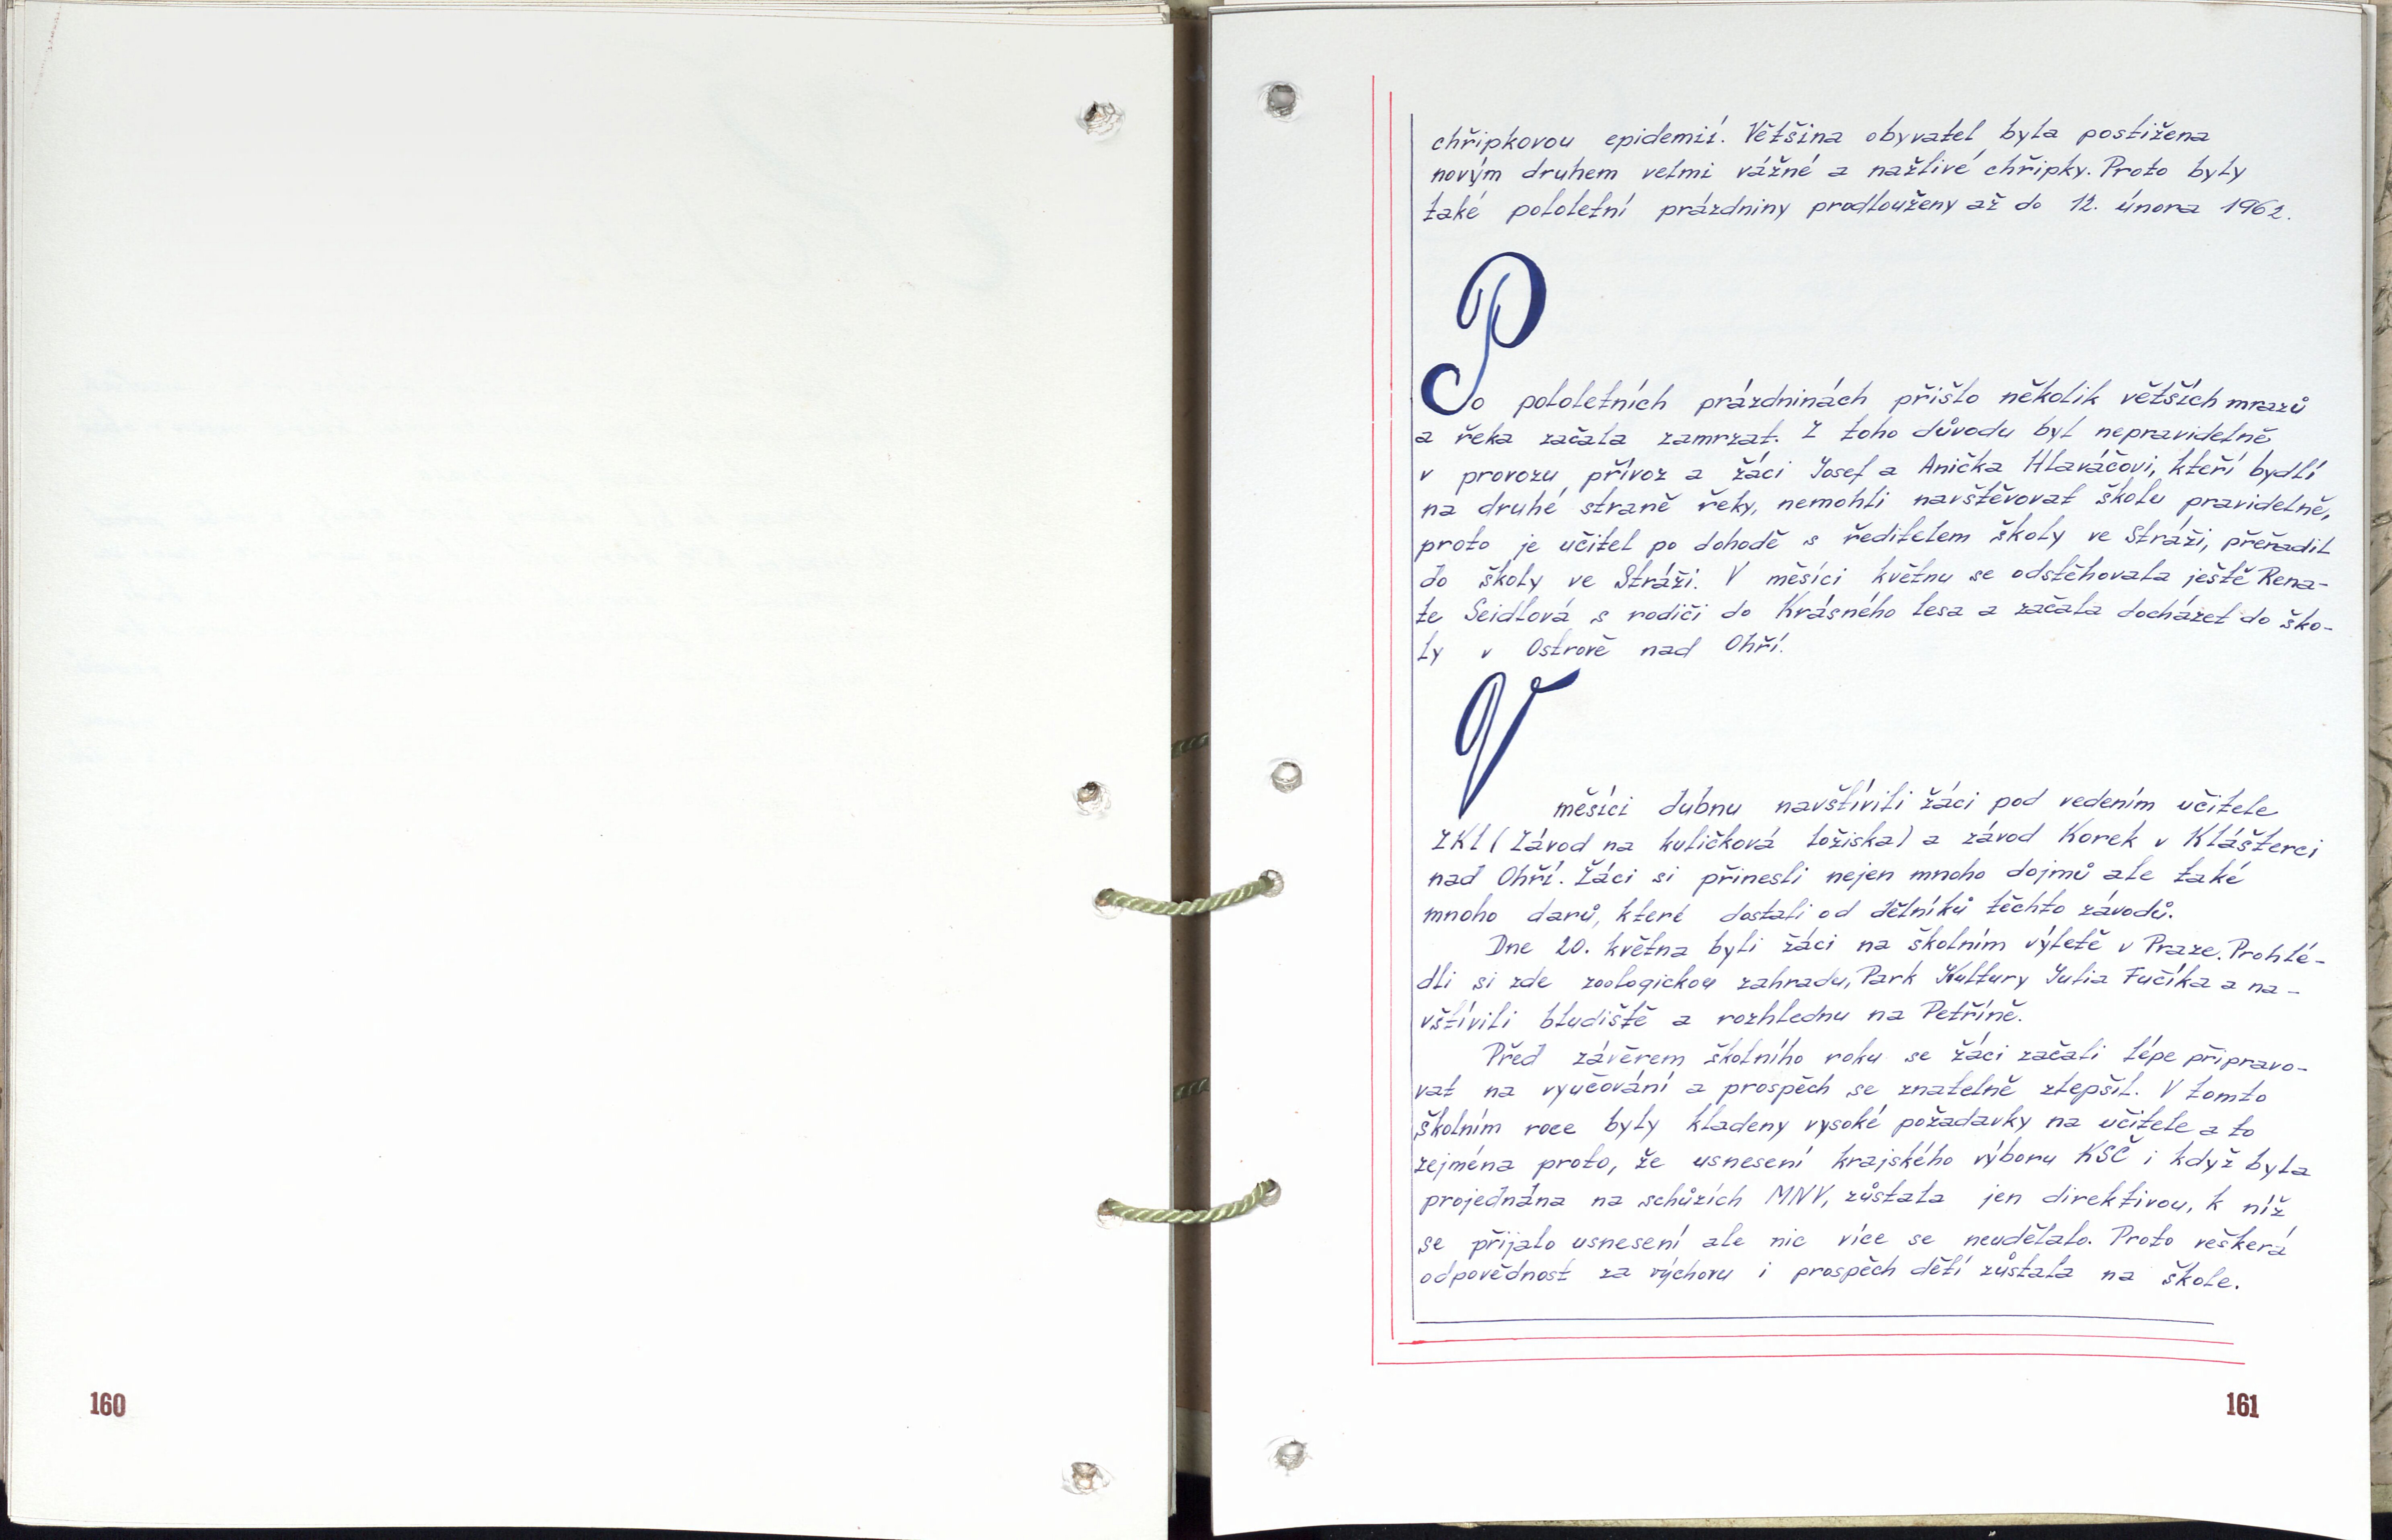 chřipkovou epidemií. Většina obyvatel byla postižena
novým druhem velmi vážné a nažlivé chřipky. Proto byly
také pololetní prázdniny prodlouženy až do 12. února 1962.
Po pololetních prázdninách přišlo několik větších mrazů
a řeka začala zamrzat. Z toho důvodu byl nepravidelně
v provozu přívoz a žáci Josef a Anička Hlaváčovi, kteří bydlí
na druhé straně řeky, nemohli navštěvovat školu pravidelně,
proto je učitel po dohodě s ředitelem školy ve Stráži, přeřadil
do školy ve Stráži. V měsíci květnu se odstěhovala ještě Rena-
te Seidlová s rodiči do Krásného lesa a začala docházet do ško-
ly v Ostrově nad Ohří.
V měsíci dubnu navštívili žáci pod vedením učitele
ZKL (Závod na kuličková ložiska) a závod Korek v Klášterci
nad Ohří. Žáci si přinesli nejen mnoho dojmů ale také
mnoho darů, které dostali od dělníků těchto závodů.
Dne 20. května byli žáci na školním výletě v Praze. Prohlé-
dli si zde zoologickou zahradu, Park Kultury Julia Fučíka a na-
vštívili bludiště a rozhlednu na Petříně.
Před závěrem školního roku se žáci začali lépe připravo-
vat na vyučování a prospěch se znatelně zlepšil. V tomto
školním roce byly kladeny vysoké požadavky na učitele a to
zejména proto, že usnesení krajského výboru KSČ i když byla
projednána na schůzích MNV, zůstala jen direktivou, k níž
se přijalo usnesení ale nic více se neudělalo. Proto veškerá
odpovědnost za výchovu i prospěch dětí zůstala na škole.
160
161